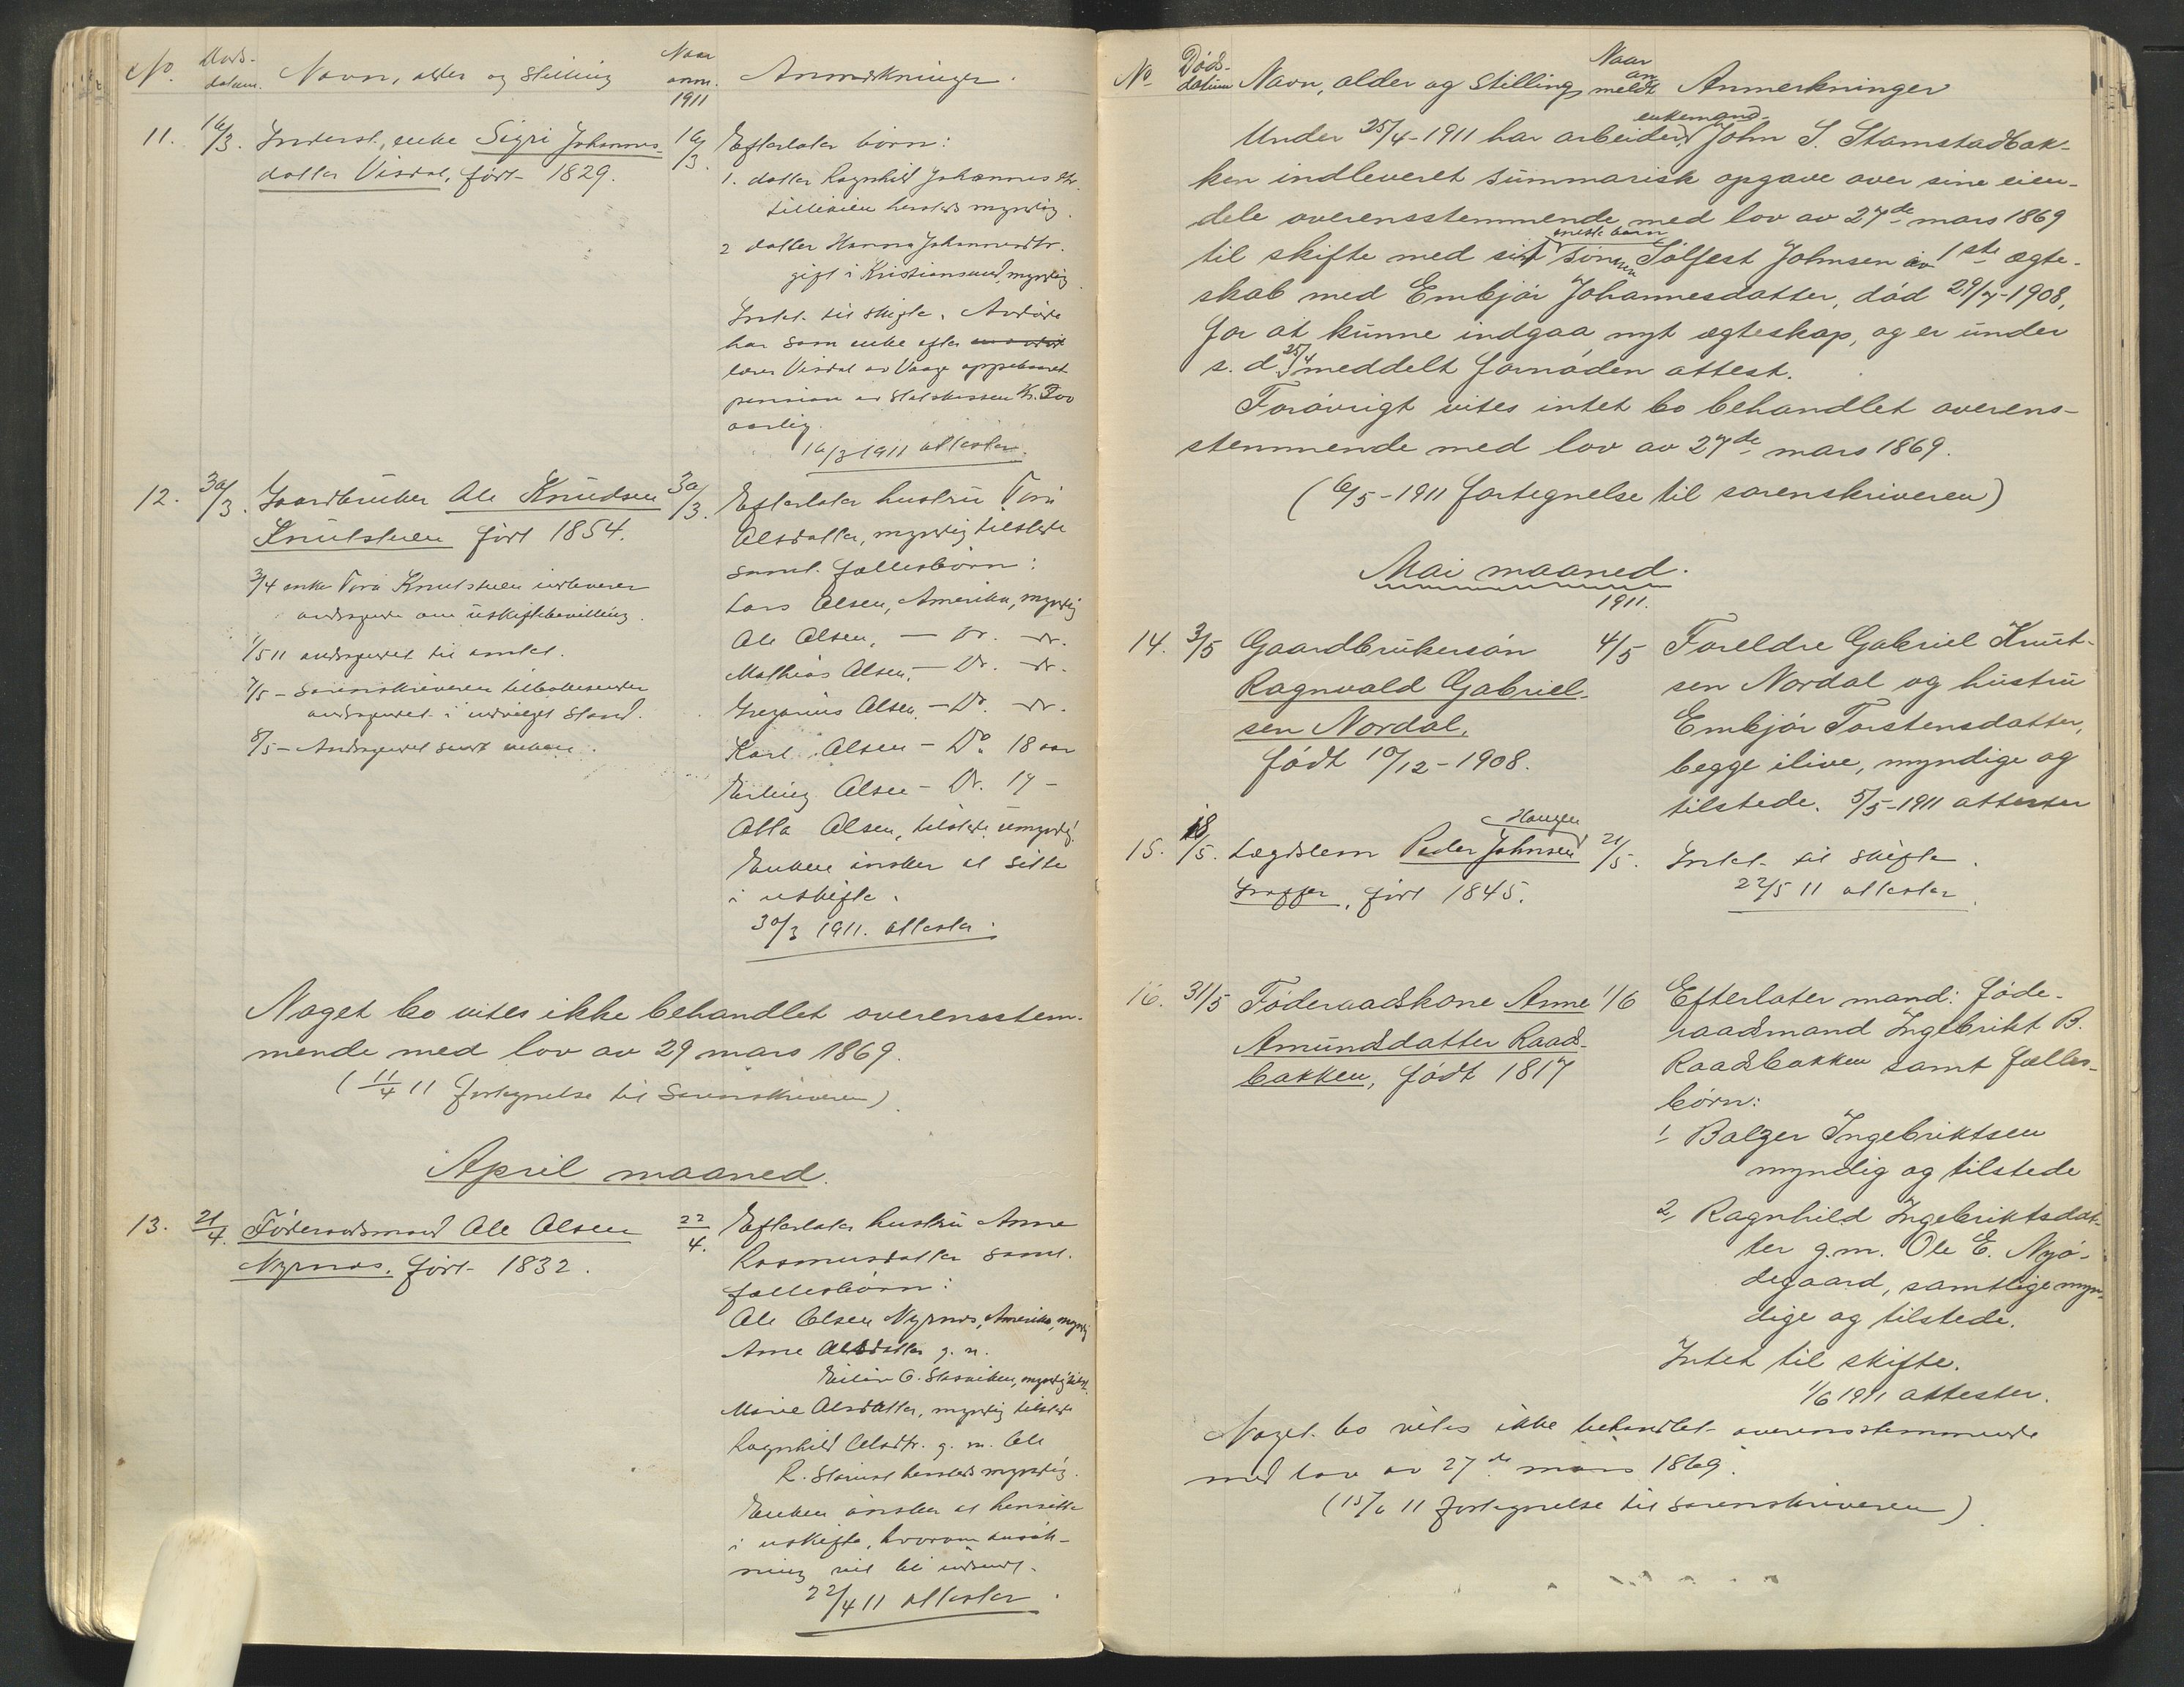 No. Døds- datum. Navn, alder og stilling Naar anm. 1911 Anmerkninger.
11. 16/3. Inderst, enke Sigri Johannes-
datter Visdal, født 1829.
16/3. Efterlater børn:
1. datter Ragnhild Johannesdtr.
tilleien hersteds myndig.
2 datter Hanna Johannesdtr.
gift i Kristiansund, myndig
Intet til skifte. Avdøde
har som enke efter
lærer Visdal av Vaage oppebaaret
pension av statskassen Kr.
aarlig.
16/3 1911 attester.
12. 30/3. Gaardbruker Ole Knudsen
Knutstuen født 1854.
3/4 enke Tora Knutstuen indleverer
andragende om uskiftebevilling.
1/5 11 andragendet til amtet.
7/5 – Sorenskriveren tilbakesender
andragendet i indvilget stand.
8/5 – Andragendet sendt enken.
30/3. Efterlater hustru Tora
Olsdatter, myndig tilstede
samt fællesbørn:
Lars Olsen, Amerika, myndig
Ole Olsen, – Do. – do.
Mathias Olsen, – Do. – do.
Gregorius Olsen, – Do. – do.
Karl Olsen – Do. 18 aar
Erling Olsen – Do. 17 –
Olla Olsen, tilstede umyndig.
Enken ønsker at sitte
i uskifte.
30/3 1911. attester.
Noget bo vites ikke behandlet overensstem-
mende med lov av 29 mars 1869.
(11/4 11 fortegnelse til Sorenskriveren)
April maaned.
13. 21/4. Føderaadsmand Ole Olsen
Nyrnes, født 1832.
22/4. Efterlater hustru Anne
Rasmusdatter samt
fællesbørn:
Ole Olsen Nyrnes, Amerika, myndig
Anne Olsdatter g. m.
O. myndig tilst.
Marie Olsdatter, myndig tilstede
Ragnhild Olsdtr. g. m. Ole
R. hersteds myndig.
Enken ønsker at hensitte
i uskifte, hvorom ansøk-
ning vil bli indsendt.
22/4 11 attester.
No Døds- datum Navn, alder og Stilling Naar an meldt Anmerkninger
enkemand
Under 25/4-1911 har arbeider John S. Stamstadbak-
ken indleveret summarisk opgave over sine eien-
dele overensstemmende med lov av 27de mars 1869
eneste barn
til skifte med sit sønnen Sølfest Johnsen av 1ste ægte-
skab med Embjør Johannesdatter, død 29/7-1908,
for at kunne indgaa nyt ægteskap, og er under
s. d. 25/4 meddelt fornøden attest.
Forøvrigt vites intet bo behandlet overens-
stemmende med lov av 27de mars 1869.
(6/5-1911 fortegnelse til sorenskriveren)
Mai maaned.
1911.
14. 3/5 Gaardbrukersøn
Ragnvald Gabriel-
sen Nordal,
født 10/12-1908.
4/5 Foreldre Gabriel Knut-
sen Nordal og hustru
Embjør Torstensdatter,
begge ilive, myndige og
tilstede. 5/5-1911 attester
15. 18/5. Lægdslem Peder Johnsen
Haugen
født 1845.
21/5. Intet til skifte.
22/5 11 attester.
16. 31/5 Føderaadskone Anne
Amundsdatter Raad-
bakken, født 1817
1/6 Efterlater mand: føde-
raadsmand Ingebrikt B.
Raadbakken samt fælles-
børn:
1, Balzer Ingebriktsen
myndig og tilstede
2, Ragnhild Ingebriktsdat-
ter g.m. Ole E. Nyø-
degaard, samtlige myn-
dige og tilstede.
Intet til skifte.
1/6 1911 attester.
Noget bo vites ikke behandlet overensstemmende
med lov av 27de mars 1869.
(15/6 11 fortegnelse til sorenskriveren)